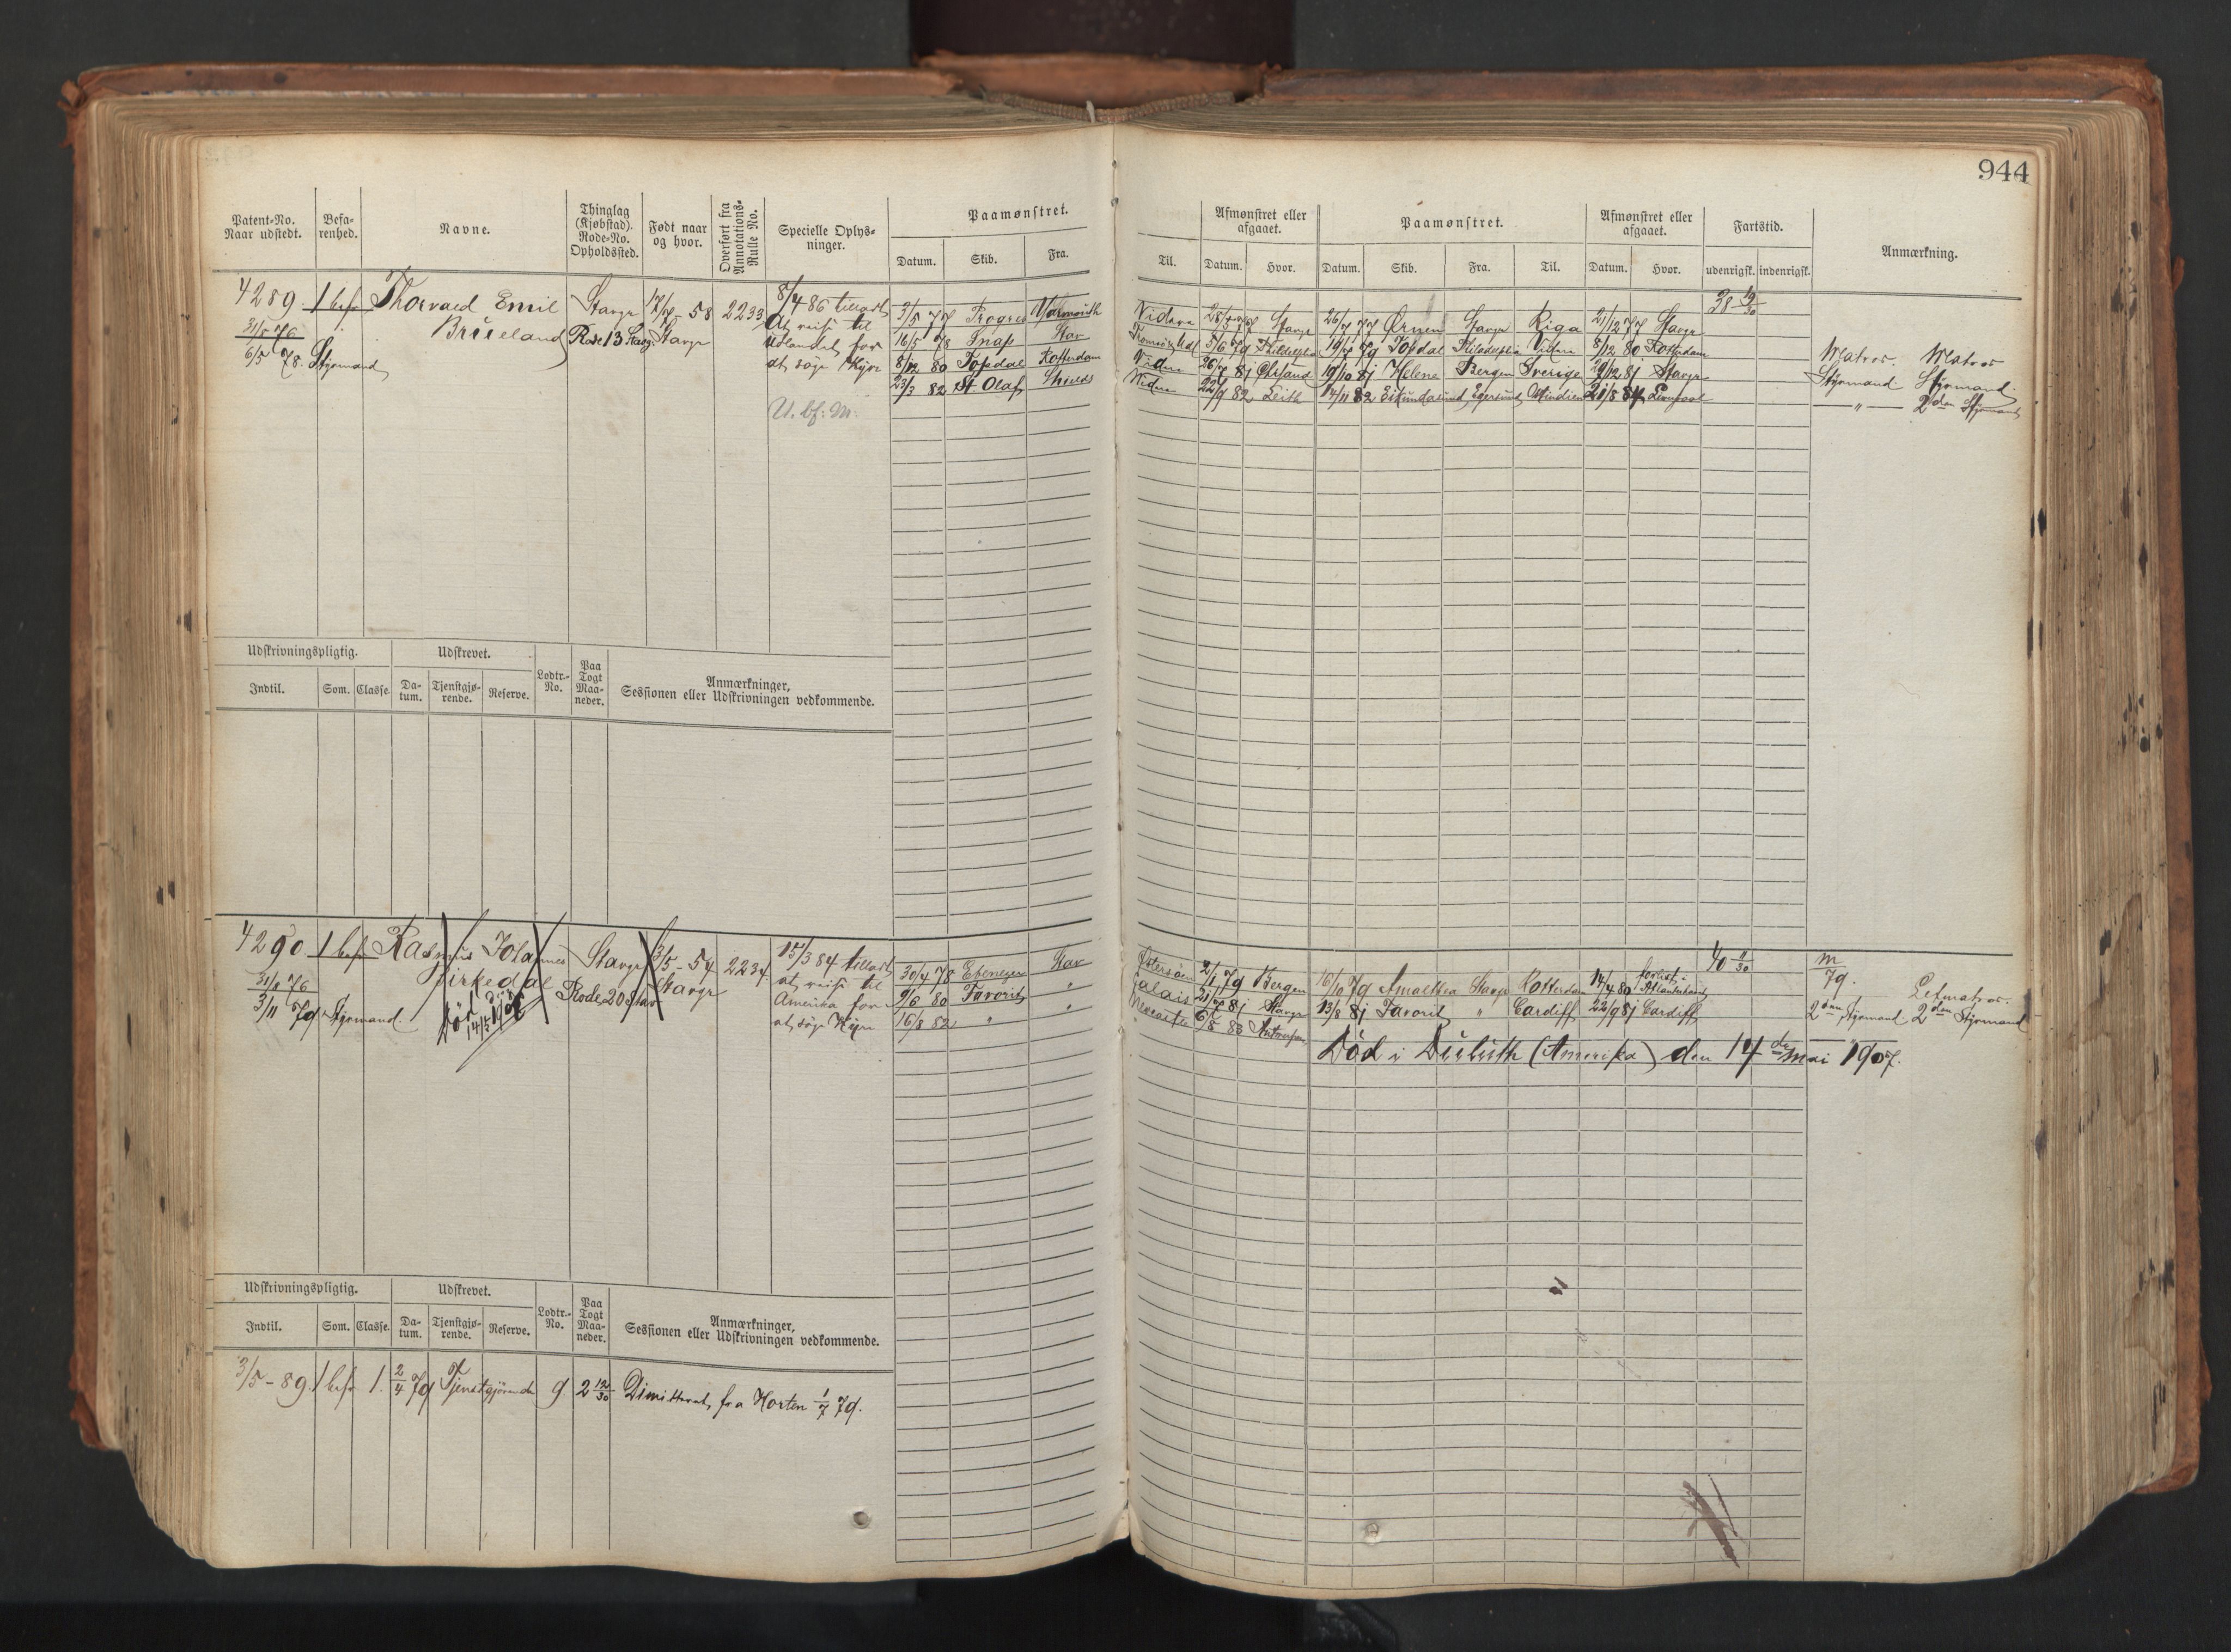 944
Patent-No. Naar udstedt.
Befarenhed.
Navne.
Thinglag (Kjøbstad). Rode-No. Opholdssted.
Født naar og hvor.
Overført fra Annotations-Rulle No.
Specielle Oplysninger.
Paamønstret.
Datum. Skib. Fra.
Til.
Afmønstret eller afgaaet.
Datum. Hvor.
Paamønstret.
Datum. Skib. Fra. Til.
Afmønstret eller afgaaet.
Datum. Hvor.
Fartstid.
udenrigsk. indenrigsk.
Anmærkning.
4289 1 bef Thorvald Emil Stavgr 17/7-58 2233 8/4 86 tilladt
31/5 76 Brueland Rode 13 Stavg. Stavgr At reise til
6/5 78. Styrmand Udlandet for
at søge Hyre
U. bf: M.
3/5 77 Progres Yarmouth
16/5 78 Snap Stav
8/12 80 Topdal Rotterdam
23/3 82 St. Olaf Shields
38 19/30
Stavgr 26/7 77 Ørnen Stavgr Riga 21/12 77 Stavgr
5/6 79 Philadelphia 19/7 79 Topdal Philadelphia Viden 8/12 80 Rotterdam Matros. Matros
26/7 81 Chrsand 19/10 81 Helene Bergen Sverige 29/12 81 Stavgr Styrmand Styrmand
22/9 82 Leith 14/11 82 Eikundasund Egersund Ostindien 21/8 84 Liverpool — " — 2den Styrmand
Udskrivningspligtig. Udskrevet.
Indtil. Som. Classe. Datum. Tjenstgjørende. Reserve. Lodtr.-No. Paa Togt Maaneder.
Anmærkninger, Sessionen eller Udskrivningen vedkommende.
4290 1 bef Rasmus Johannes Stavgr 3/5-54 2234. 15/3 84 tilladt
31/8 76 Birkedal Rode 20 Stav Stavgr at reise til
3/11 79 Styrmand. Död Amerika for
14/5 1907 at søge Hyre
30/4 78 Ebenezer Stav
9/6 80 Favorit "
16/8 82 " "
40 11/30
m/79.
Østersøen 2/1 79 Bergen 16/10 79 Amalthea Stavgr Rotterdam 14/4 80 forlist i Atlanterhavet Letmatros.
Calais 21/7 81 Stavgr 13/8 81 Favorit " Cardiff 22/9 81 Cardiff 2den Styrmand 2den Styrmand
Newcastle 6/8 83 Antwerpen
Död i Duluth (Amerika) den 14de mai 1907.
Udskrivningspligtig. Udskrevet.
Indtil. Som. Classe. Datum. Tjenstgjørende. Reserve. Lodtr.-No. Paa Togt Maaneder.
Anmærkninger, Sessionen eller Udskrivningen vedkommende.
3/5-89. 1 bef 1. 2/4 79 Tjenstgjørende 9 2 12/30 Dimitteret fra Horten 1/7 79.